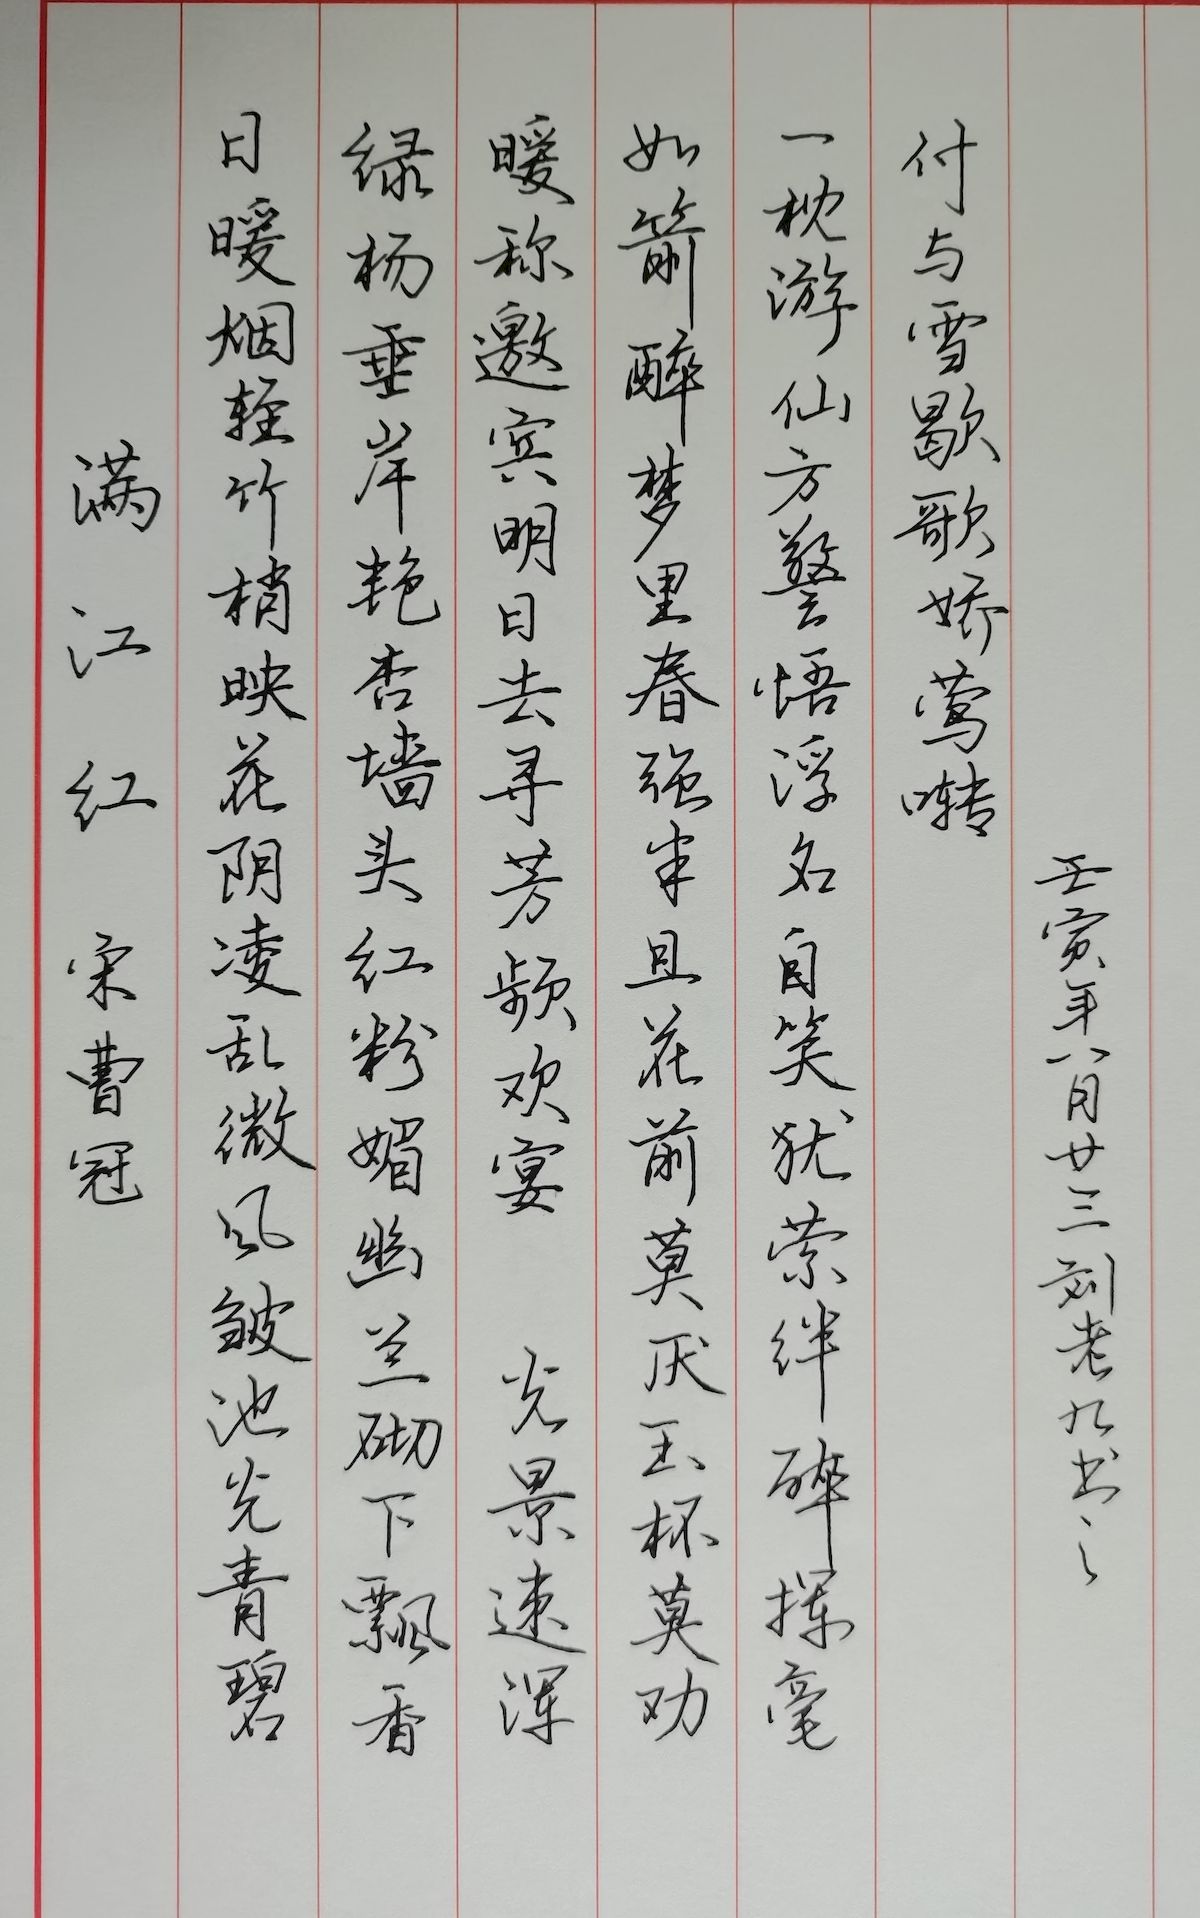 满江红 宋曹冠
日暖烟轻竹梢映花阴凌乱微风皱池光青碧
绿杨垂岸艳杏墙头红粉媚幽兰砌下飘香
暖称邀宾明日去寻芳频欢宴 光景速浑
如箭醉梦里春强半且花前莫厌玉杯莫劝
一枕游仙方警悟浮名自笑犹萦绊醉挥毫
付与雪歇歌娇莺啭
壬寅年八月廿三刘老九书之